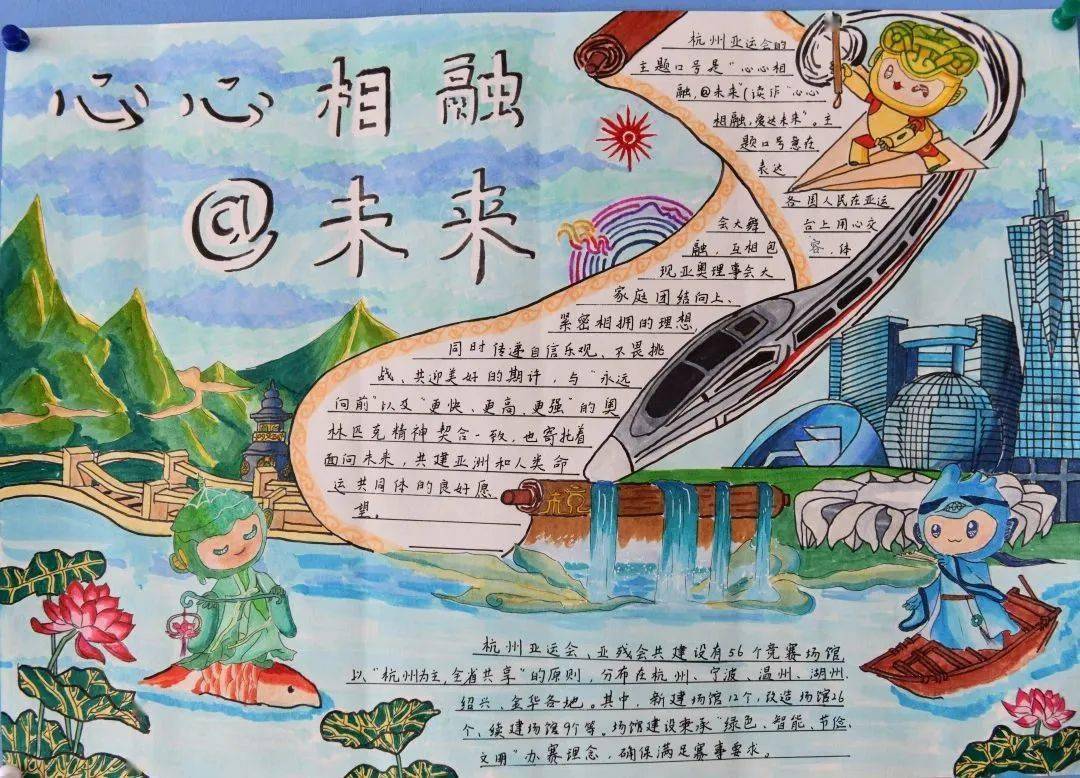 心心相融
@未来
杭州亚运会的
主题口号是“心心相
融,@未来”(读作“心心
相融,爱达未来”。主
题口号意在
表达
各国人民在亚运
会大舞台上用心交
融,互相包容,体
现亚奥理事会大
家庭团结向上、
紧密相拥的理想,
同时传递自信乐观、不畏挑
战、共迎美好的期许,与“永远
向前”以及“更快、更高、更强”的奥
林匹克精神契合一致,也寄托着
面向未来,共建亚洲和人类命
运共同体的良好愿
望。
杭州亚运会、亚残会共建设有56个竞赛场馆,
以“杭州为主,全省共享”的原则,分布在杭州、宁波、温州、湖州、
绍兴、金华各地。其中,新建场馆12个,改造场馆26
个、续建场馆9个等。场馆建设秉承“绿色、智能、节俭、
文明”办赛理念,确保满足赛事要求。